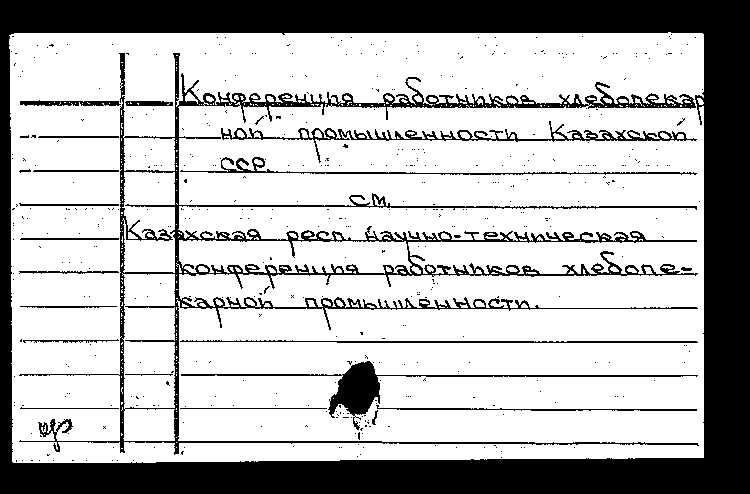 Конференция работников хлебопекар
ной промышленности Казахской
ССР.
см.
Казахская респ. научно-техническая
конференция работников хлебопе=
карной промышленности.